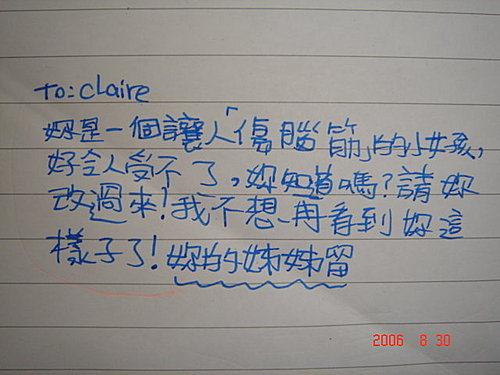 To: claire
妳是一個讓人「傷腦筋」的小女孩,
好令人受不了,妳知道嗎?請妳
改過來!我不想再看到妳這
樣子了!妳的姊姊留
2006 8 30